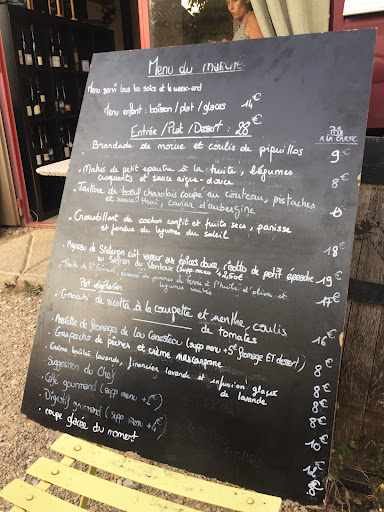 Menu du
Menu servi tous les soirs et le week-end
Menu enfant : boisson / plat / glaces 14€
Entrée / Plat / Dessert : 28€
Prix
A LA CARTE
Brandade de morue et coulis de piquillos 9€
Makis de petit epeautre à la truite, légumes
croquants et sauce aigre-douce 8€
Tartare de bœuf charolais coupé au couteau, pistaches
et sauce thaï, caviar d'aubergine
Croustillant de cochon confit et fruits secs, panisse
et fondue de légumes du soleil 18€
Agneau de Sisteron cuit vapeur aux épices douce, risotto de petit épeautre
au safran du Ventoux (supp menu 4,50€) 19€
à l'huile d'olive et
légumes 17€
Plat végétarien
Gnocchi de ricotta à la courgette et menthe, coulis
de tomates 16€
Assiette de fromage de Lou Canesteou (supp menu +5€ fromage ET dessert) 8€
Gaspacho de pêches et crème mascarpone 8€
Crème brûlée lavande, financier lavande et infusion glacée
de lavande 8€
Suggestion du Chef 8€
Café gourmand (supp menu 10€
Digestif gourmand (supp. menu
coupe glacée du moment 8€